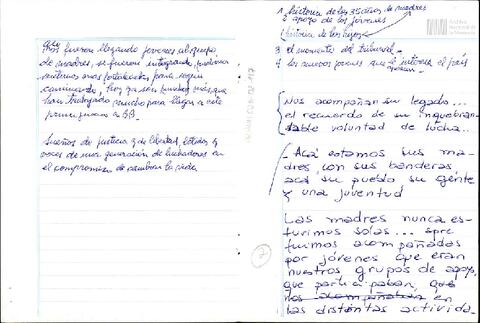 fueron llegando jóvenes al grupo
de madres, se fueron integrando, pudimos
sentirnos mas fortalecidas para seguir
caminando, hoy ya son muchos más que
han trabajado mucho para llegar a este
primer juicio en BB.
Sueños de justicia y de libertad, latidos y
voces de una generación de luchadores en
el compromiso de cambiar la vida.
2
1 historia de los 35 años de madres
2 apoyo de los jóvenes
historia de los hijos
3 el momento del tribunal
4 los nuevos jóvenes que la historia el país
Archivo
Nacional de
la Memoria
Nos acompañan su legado...
el recuerdo de su inquebran-
dable voluntad de lucha...
Acá estamos sus ma-
dres, con sus banderas,
acá su pueblo su gente
y una juventud
Las madres nunca es-
tuvimos solas... spre
fuimos acompañadas
por jóvenes que eran
nuestros grupos de apoyo,
que participaban, que
nos acompañaban en
las distintas activida-